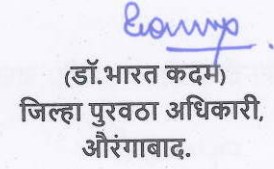 (डॉ.भारत कदम)
जिल्हा पुरवठा अधिकारी,
औरंगाबाद.